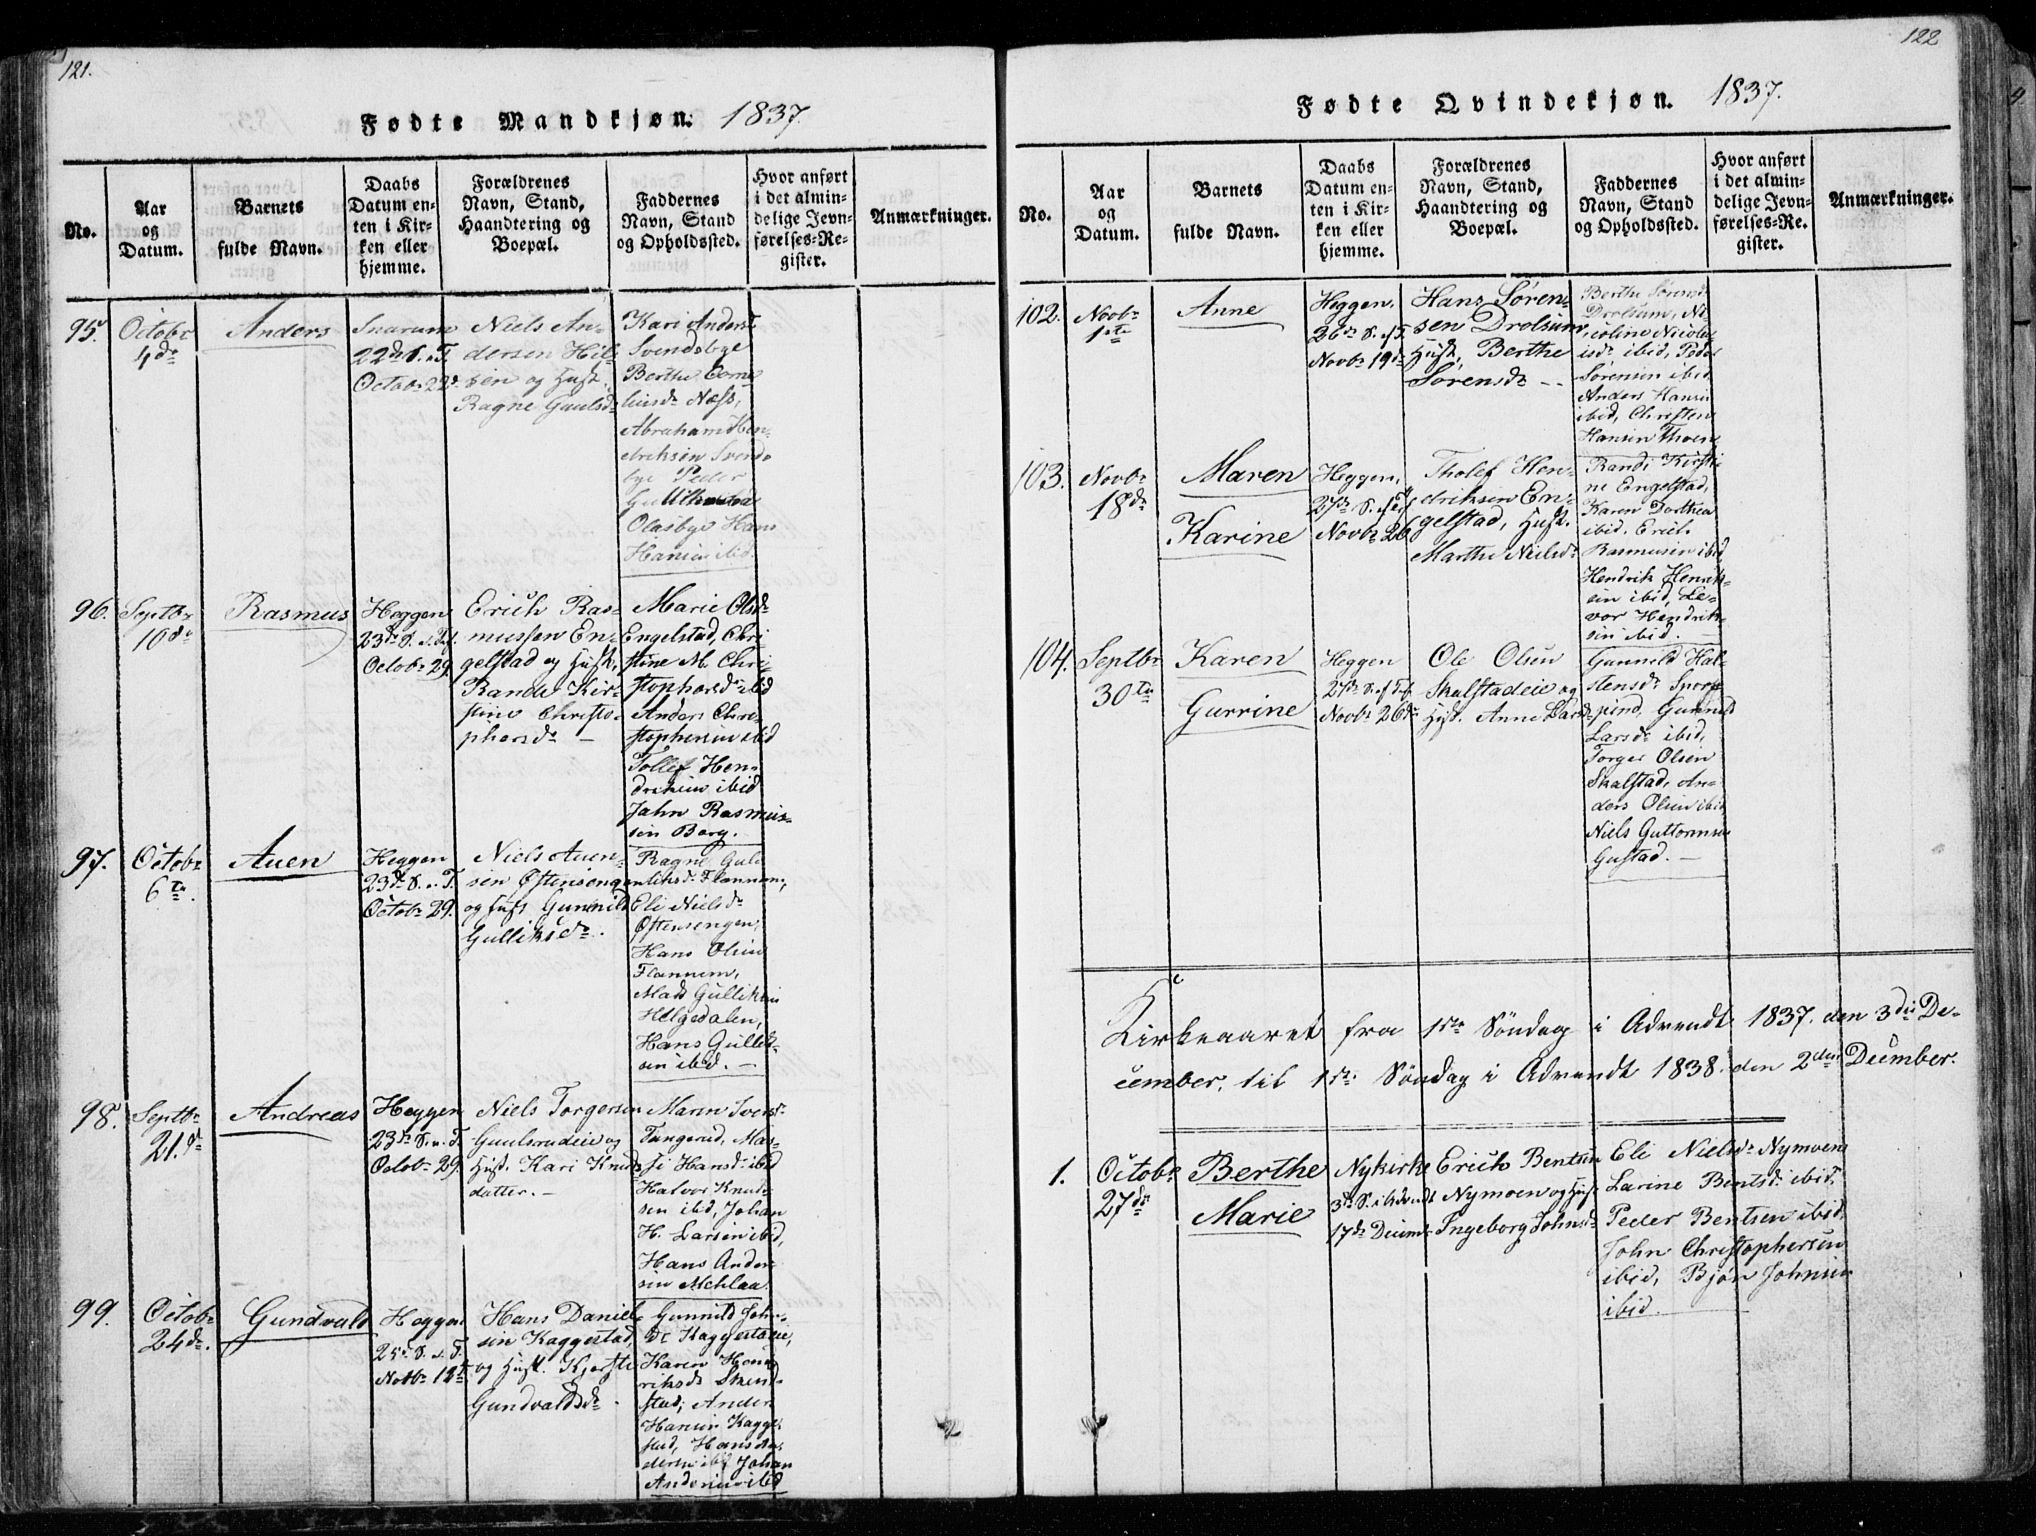 121.
Fødte Mandkjøn. 1837.
No.
Aar
og
Datum.
Barnets
fulde Navn.
Daabs
Datum en-
ten i Kir-
ken eller
hjemme.
Forældrenes
Navn, Stand,
Haandtering og
Boepæl.
Faddernes
Navn, Stand
og Opholdssted.
Hvor anført
i det almin-
delige Jevn-
førelses-Re-
gister.
Anmærkninger.
95.
Octobr
4de
Anders
Snarum
22de S. e. T.
Octobr 22d.
Niels An-
dersen Hil-
sen og Hust.
Ragne Guulsdr
Kari Andersd.
Svendsbye
Berthe Corne-
liusdr Næss,
Abraham Hen-
driksen Svends-
bye Peder
Olasbye Hans
Hansen ibid.
96.
Septbr
10de
Rasmus
Heggen
23de S. e. Tref.
Octobr 29.
Erich Ras-
mussen En-
gelstad og Hust.
Rande Kir-
stine Christo-
phersdr —
Marie Olsdr
Engelstad, Chri
stine M. Chri-
stophersdr ibid
Anders Chri-
stophersen ibid
Tollef Hen-
driksen ibid
Jahn Rasmus-
sen Borg.
97.
Octobr
6te.
Auen
Heggen
23de S. e. T.
Octobr 29.
Niels Auen-
sen Østensengen
og Hust Gunnild
Gulliksdr.
Ragne Gul-
liksdr Flannum,
Eli Nielsdr
Østensengen,
Hans Olsen
Flannum,
Mads Gulliksen
Helgedalen,
Hans Gullik-
sen ibid. —
98.
Septbr
21de
Andreas
Heggen
23de S. e. T.
Octobr 29.
Niels Torgersen
Guulsrudeie og
Hust. Kari Knuds-
datter. —
Maren Iversdr
Tangerud, Mas-
si Hansdr ibid
Halvor Knud-
sen ibid, Johan
H. Larsen ibid,
Hans Ander-
sen Mehlaa.
99.
Octobr
24de.
Gundvald
Heggen
25de S. e. T.
Novbr 12te
Hans Daniel-
sen Kaggestad,
og Hust. Kjersti
Gundvaldsdr.
Gunnild John-
dr Kaggestadeie,
Karen Hend-
riksdr Skind-
stad, Anders
Hansen Kagge-
stad, Hans An-
dersen ibid, Johan
Andersen ibid
122
Fødte Qvindekjøn. 1837.
No.
Aar
og
Datum.
Barnets
fulde Navn.
Daabs
Datum en-
ten i Kir-
ken eller
hjemme.
Forældrenes
Navn, Stand,
Haandtering og
Boepæl.
Faddernes
Navn, Stand
og Opholdssted.
Hvor anført
i det almin-
delige Jevn-
førelses-Re-
gister.
Anmærkninger.
102.
Novbr
1ste
Anne
Heggen,
26de S. e. T.
Novbr 19de
Hans Søren-
sen Drolsum,
Hust. Berthe
Sørensdr - -
Berthe Sørensd.
Drolsum, Ni-
coline Nicolai-
isdr ibid, Peder
Sørensen ibid,
Anders Hansen
ibid, Christen
Hansen Thoen
103.
Novbr
18de
Maren
Karine
Heggen,
27de S. e. T.
Novbr 26
Tholef Hen-
driksen En-
gelstad, Hust.
Marthe Nielsdr
Randi Kirsti-
ne Engelstad,
Karen Dorthea
ibid. Erich
Rasmusen ibid
Hendrik Henrik-
sen ibid, Le-
vor Hendrik-
sen ibid. —
104.
Septbr
30te
Karen
Gurrine
Heggen
27de S. e. Tref.
Novbr 26de
Ole Olsen
Skalstadeie og
Hust. Anne Larsdr
Gunnild Hal-
stensdr Spone
pind, Gunnild
Larsdr ibid,
Torger Olsen
Skalstad, An-
ders Olsen ibid
Niels Guttormsen
Gustad. —
Kirkeaaret fra 1ste Søndag i Advendt 1837. den 3die De-
cember, til 1ste Søndag i Advendt 1838. den 2den December.
1.
Octobr
27de
Berthe
Marie
Nykirke
3de S. i Advendt
17de Decembr
Erich Bentsen
Nymoen og Hust
Ingeborg Johnsdr
Eli Nielsdr Nymoen
Larine Bentsdr ibid,
Peder Bentsen ibid,
John Christophersen
ibid, Bjørn Johnsen
ibid.